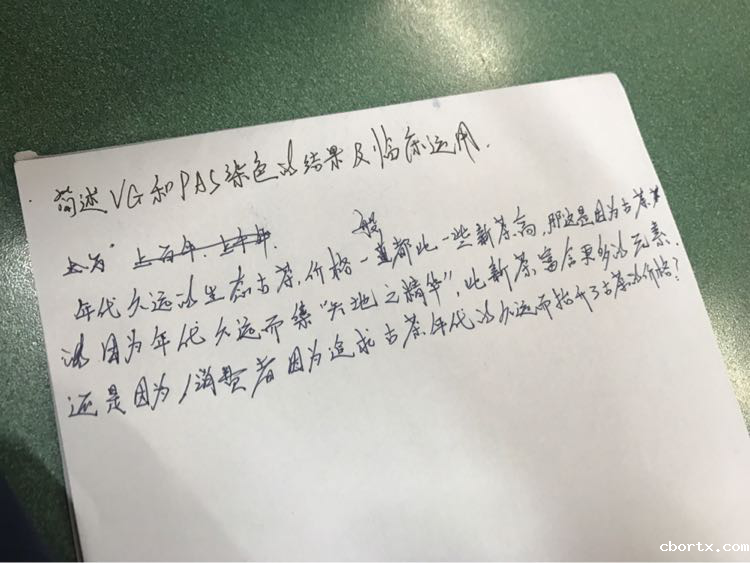 简述VG和PAS染色的结果及临床运用.
上百年.上千年.
年代久远的生态古茶,价格一般都比一些新茶高,那这是因为古茶
因为年代久远而集"天地之精华",比新茶富含更多的元素.
还是因为消费者因为追求古茶年代的久远而抬升了古茶的价格?
cbortx.com